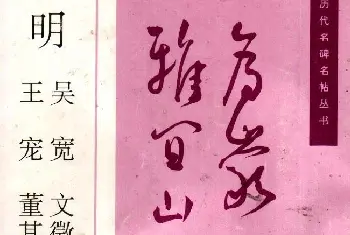 历代名碑名帖丛书
雅宜山
明
吴宽 文徵
王宠 董其